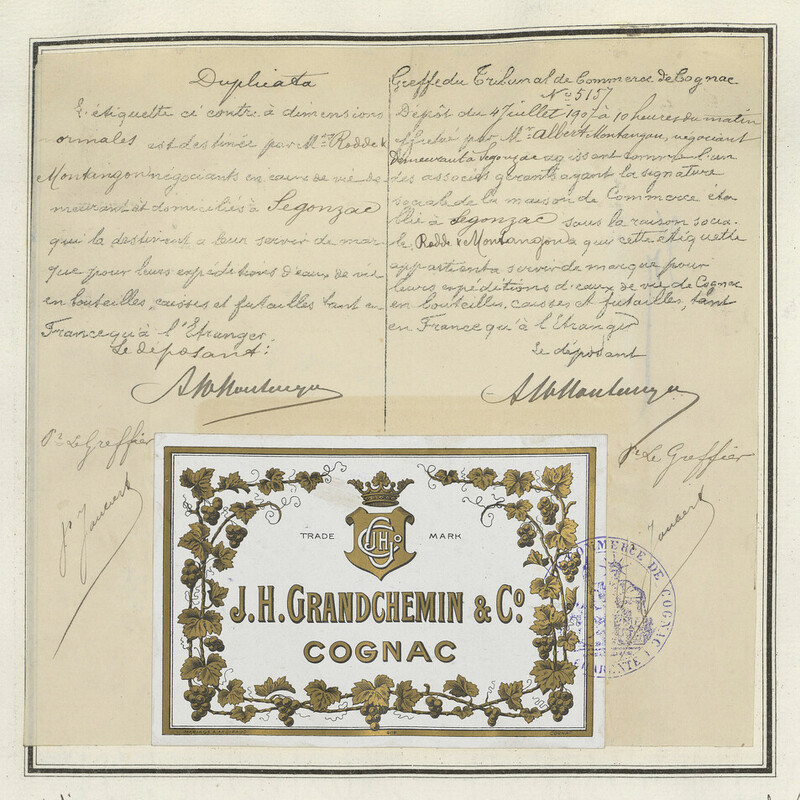 Duplicata
L'étiquette ci contre à dimensions
normales est destinée par Mrs Rodde &
Montangon négociants en eaux de vie de-
meurant et domiciliés à Segonzac
qui la destinent à leur servir de mar-
que pour leurs expéditions d'eaux de vie
en bouteilles, caisses et futailles tant en
France qu'à l'Etranger
Le déposant:
Pr Le Greffier
Greffe du Tribunal de Commerce de Cognac
No 5157
Dépôt du 4 Juillet 1907 à 10 heures du matin
effectué par Mr Albert Montangon, négociant
demeurant à Segonzac agissant comme l'un
des associés gérants ayant la signature
sociale de la maison de Commerce éta-
blie à Segonzac sous la raison socia-
le Rodde & Montangon à qui cette étiquette
appartient à servir de marque pour
leurs expéditions d'eaux de vie de Cognac
en bouteilles, caisses et futailles, tant
en France qu'à l'Etranger
Le déposant
Pr Le Greffier
TRADE MARK
JH Co
J.H. GRANDCHEMIN & Co.
COGNAC
COMMERCE DE COGNAC
CHARENTE